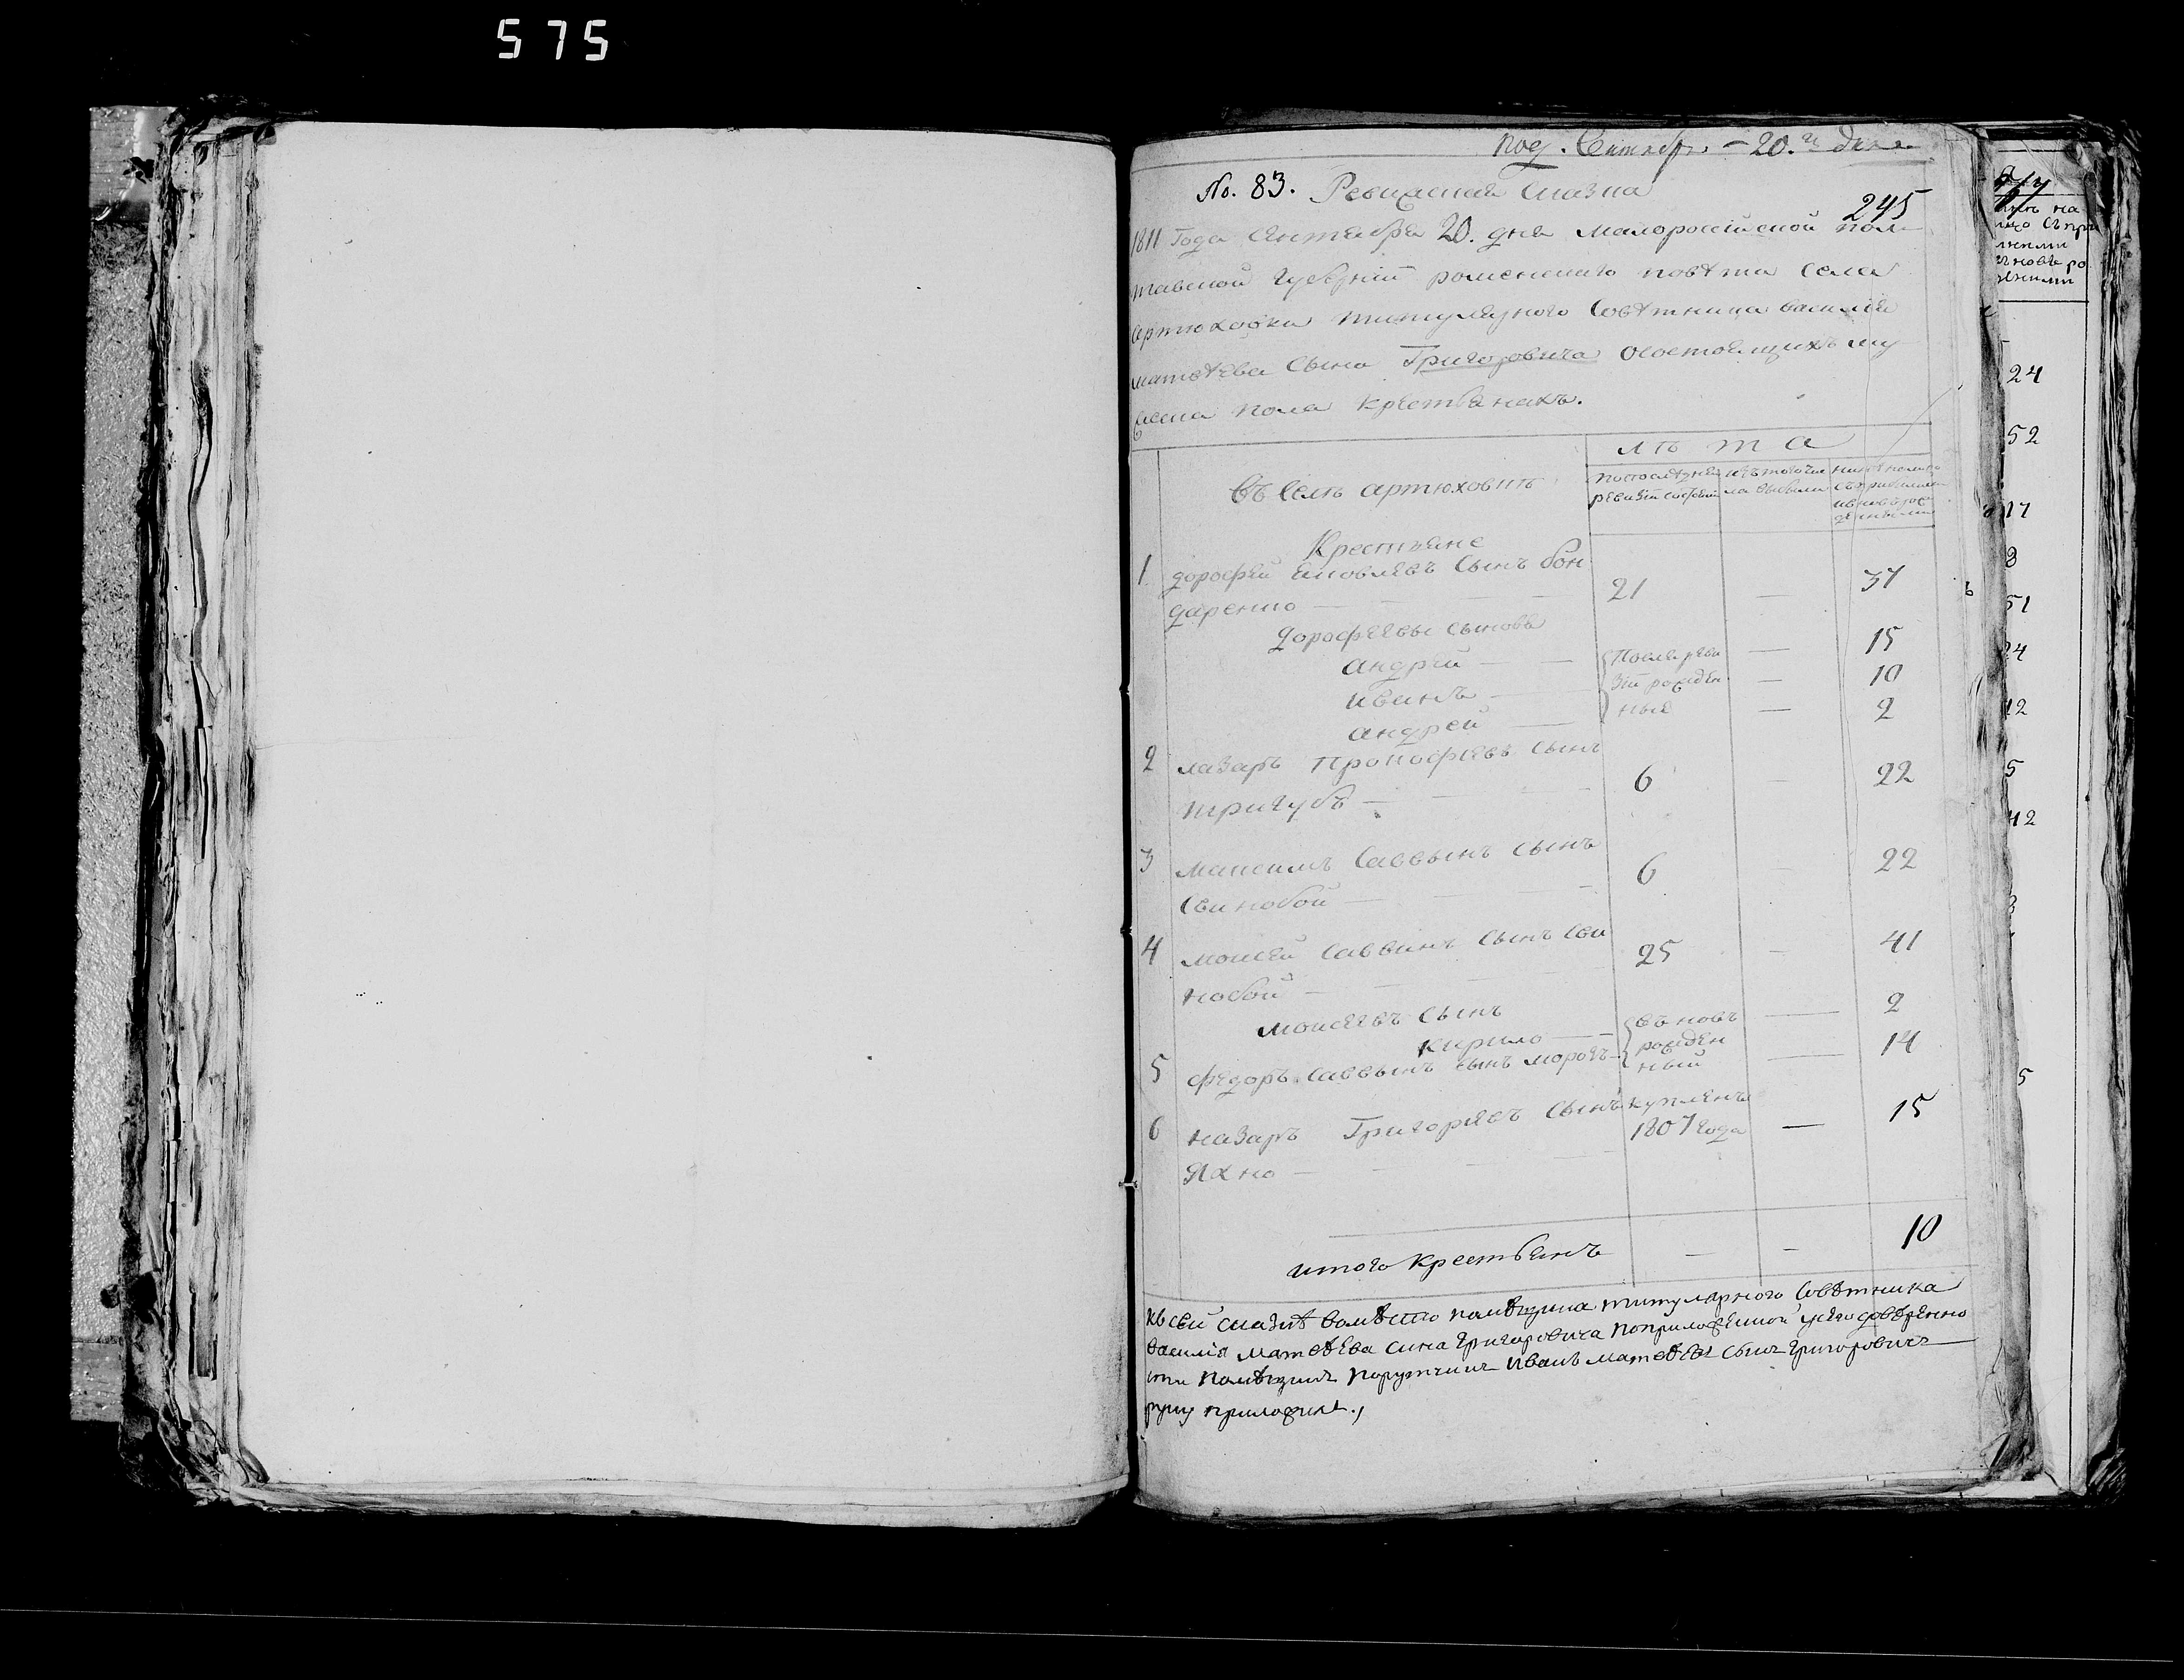 575
под. Сентября - 20.го дня
No. 83. Ревижская сказка
245
1811 Года Сентября 20. дня малороссійской пол-
тавской губерніи роменского повѣта села
артюховки титулярного Совѣтника василія
матвѣева Сына Григоровича осостоящихъ му
жеска пола крестьянахъ.
лѣта
въ Селѣ артюховкѣ
попоследней ревизіи состояло
изътого числа выбыло
нынѣ налицо съ прибылыми ивновь рожденными
Крестьяне
1 дорофей яковлевъ Сынъ бон
даренко — 21 — 37
дорофеевы сыновья
андрей — После реви — 15
иванъ — зіи рожден — 10
андрей — ные — 2
2 лазарь Прокофіевъ сынъ
тригубъ — 6 — 22
3 максимъ Саввынъ сынъ
Свинобой — 6 — 22
4 моисей Саввинъ сынъ Сви
нобой — 25 — 41
моисеевъ сынъ
кирило — въ новь рожден ный — 2
5 федоръ Саввынъ сынъ морозъ — 14
6 назаръ Григоріевъ Сынъ купленъ
Яхно — 1807 года — 15
итого крестьянъ — — 10
Къ сей сказкѣ вомѣсто помѣщика титулярного Совѣтника
Василія Матвѣева сина Григоровича поприложенной унего довѣренно
сти помѣщикъ порутчикъ Иванъ Матвѣевъ сынъ Григоровичъ
руку приложилъ.,
24
52
17
8
51
24
12
5
42
5